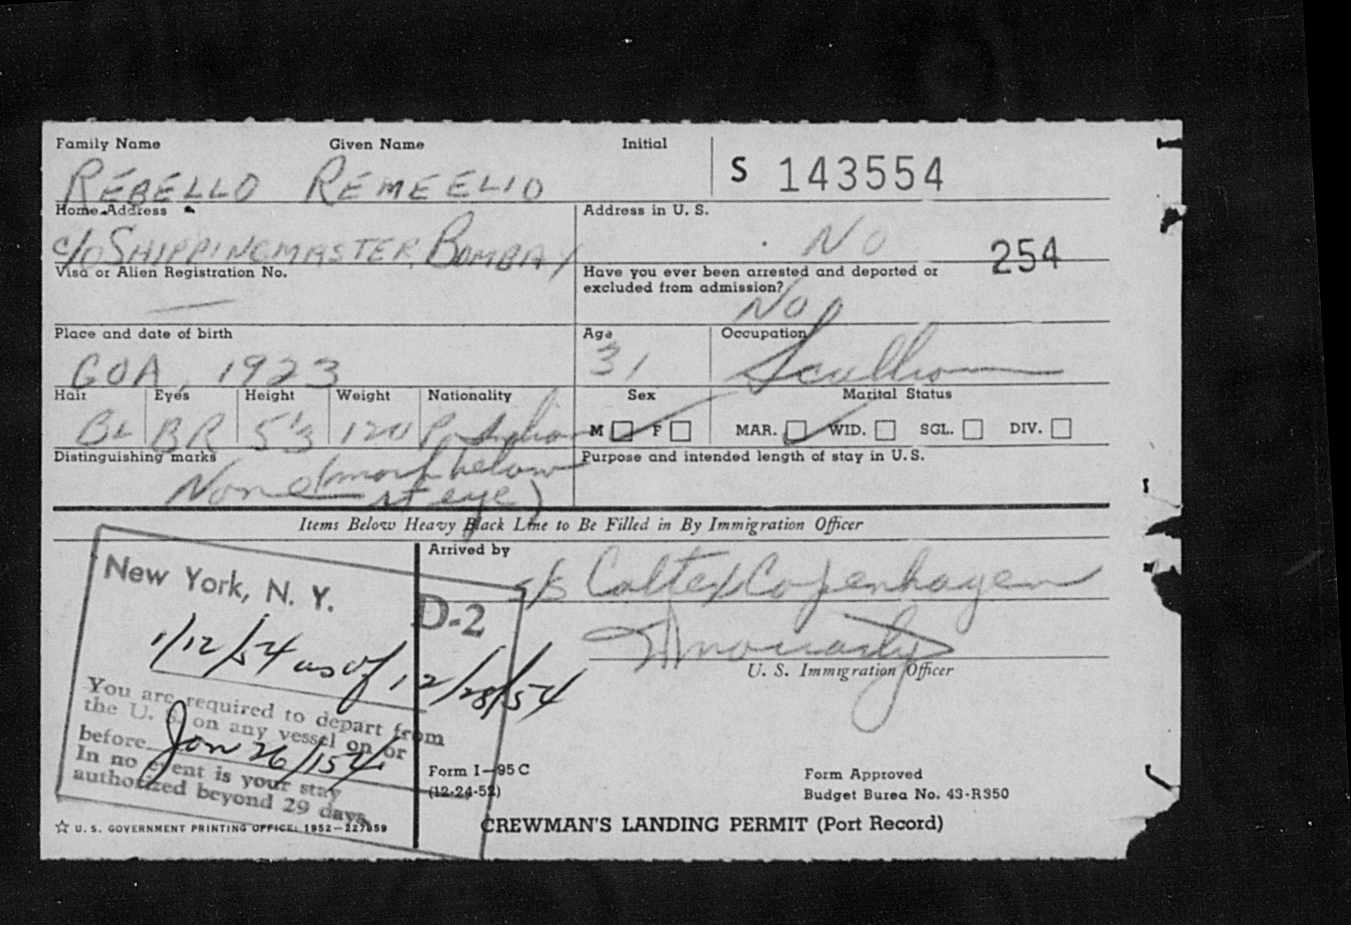 Family Name Given Name Initial
REBELLO REMEELIO S 143554
Home Address Address in U. S.
c/o SHIPPINGMASTER, BOMBAY NO 254
Visa or Alien Registration No. Have you ever been arrested and deported or
excluded from admission?
— No
Place and date of birth Age Occupation
GOA, 1923 31 Scullion
Hair Eyes Height Weight Nationality Sex Marital Status
BL BR 5'3 120 M F MAR. WID. SGL. DIV.
Distinguishing marks Purpose and intended length of stay in U.S.
None (mark below
rt eye)
Items Below Heavy Black Line to Be Filled in By Immigration Officer
Arrived by
s/s Caltex Copenhagen
New York, N. Y.
D-2
U. S. Immigration Officer
1/12/54 as of 12/28/54
You are required to depart from
the U. S. on any vessel on or
before Jan 26/1954
In no event is your stay
authorized beyond 29 days.
Form I-95 C Form Approved
(12-24-52) Budget Burea No. 43-R350
☆ U. S. GOVERNMENT PRINTING OFFICE: 1952—227859
CREWMAN'S LANDING PERMIT (Port Record)